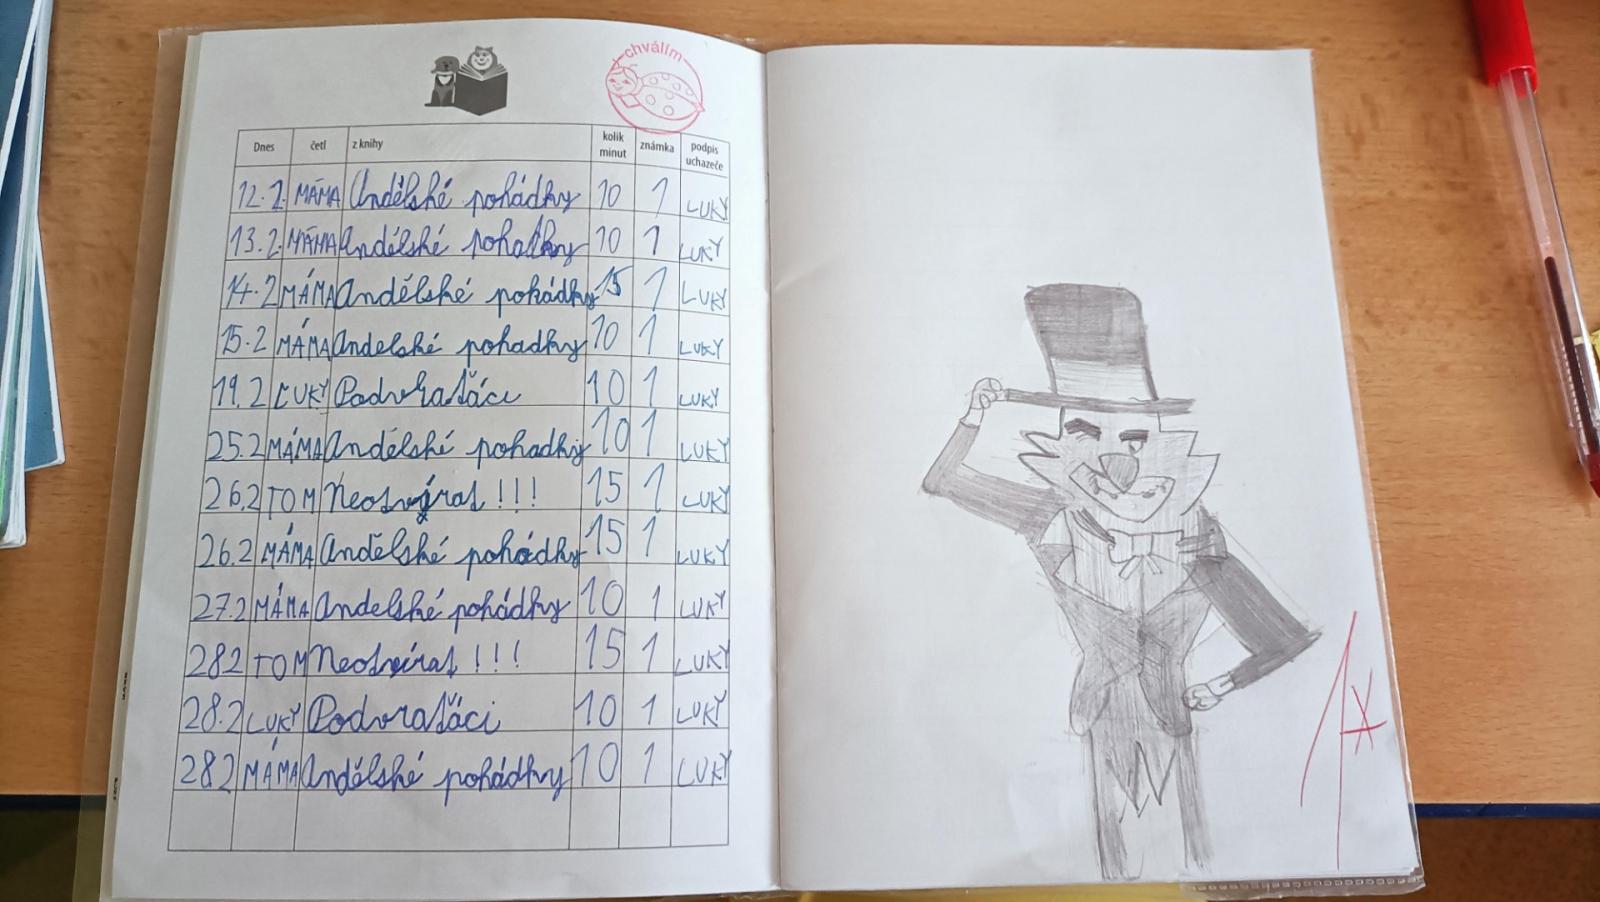 chválím
Dnes čte z knihy kolik minut známka podpis uchazeče
12.2. MÁMA Andělské pohádky 10 1 LUKY
13.2. MÁMA Andělské pohádky 10 1 LUKY
14.2 MÁMA Andělské pohádky 15 1 LUKY
15.2 MÁMA Andelské pohadky 10 1 LUKY
19.2 LUKY Podvraťáci 10 1 LUKY
25.2 MÁMA Andělské pohadky 10 1 LUKY
26.2 TOM Neotvírat !!! 15 1 LUKY
26.2 MÁMA Andělské pohádky 15 1 LUKY
27.2 MÁMA Andelské pohádky 10 1 LUKY
28.2 TOM Neotvírat !!! 15 1 LUKY
28.2 LUKY Podvraťáci 10 1 LUKY
28.2 MÁMA Andělské pohádky 10 1 LUKY
1x